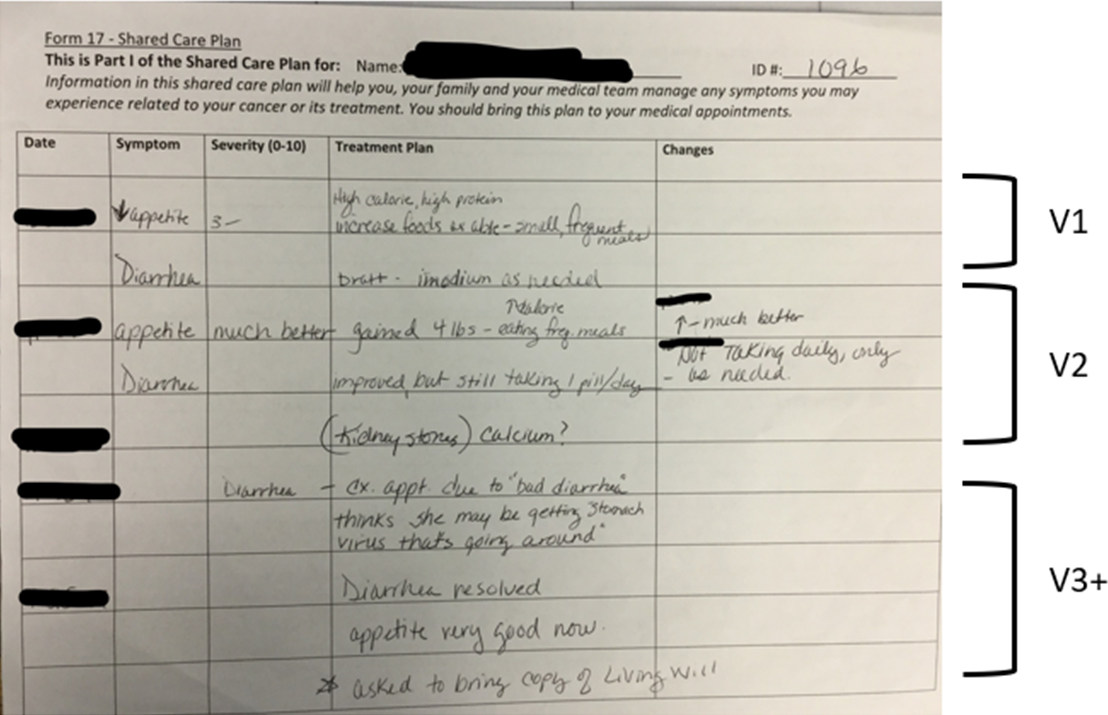 Form 17 - Shared Care Plan
This is Part I of the Shared Care Plan for: Name: ID #: 1096
Information in this shared care plan will help you, your family and your medical team manage any symptoms you may
experience related to your cancer or its treatment. You should bring this plan to your medical appointments.
Date Symptom Severity (0-10) Treatment Plan Changes
High calorie, high protein
↓appetite 3- increase foods as able - small, frequent
meals
V1
Diarrhea bratt - imodium as needed
↑calorie
appetite much better gained 4 lbs - eating freq. meals ↑-much better
Not Taking daily, only
Diarrhea improved but still taking 1 pill/day - as needed.
V2
(Kidney stones) Calcium?
Diarrhea - cx. appt. due to "bad diarrhea"
thinks she may be getting "stomach
virus that's going around"
V3+
Diarrhea resolved
appetite very good now.
* asked to bring copy of Living Will